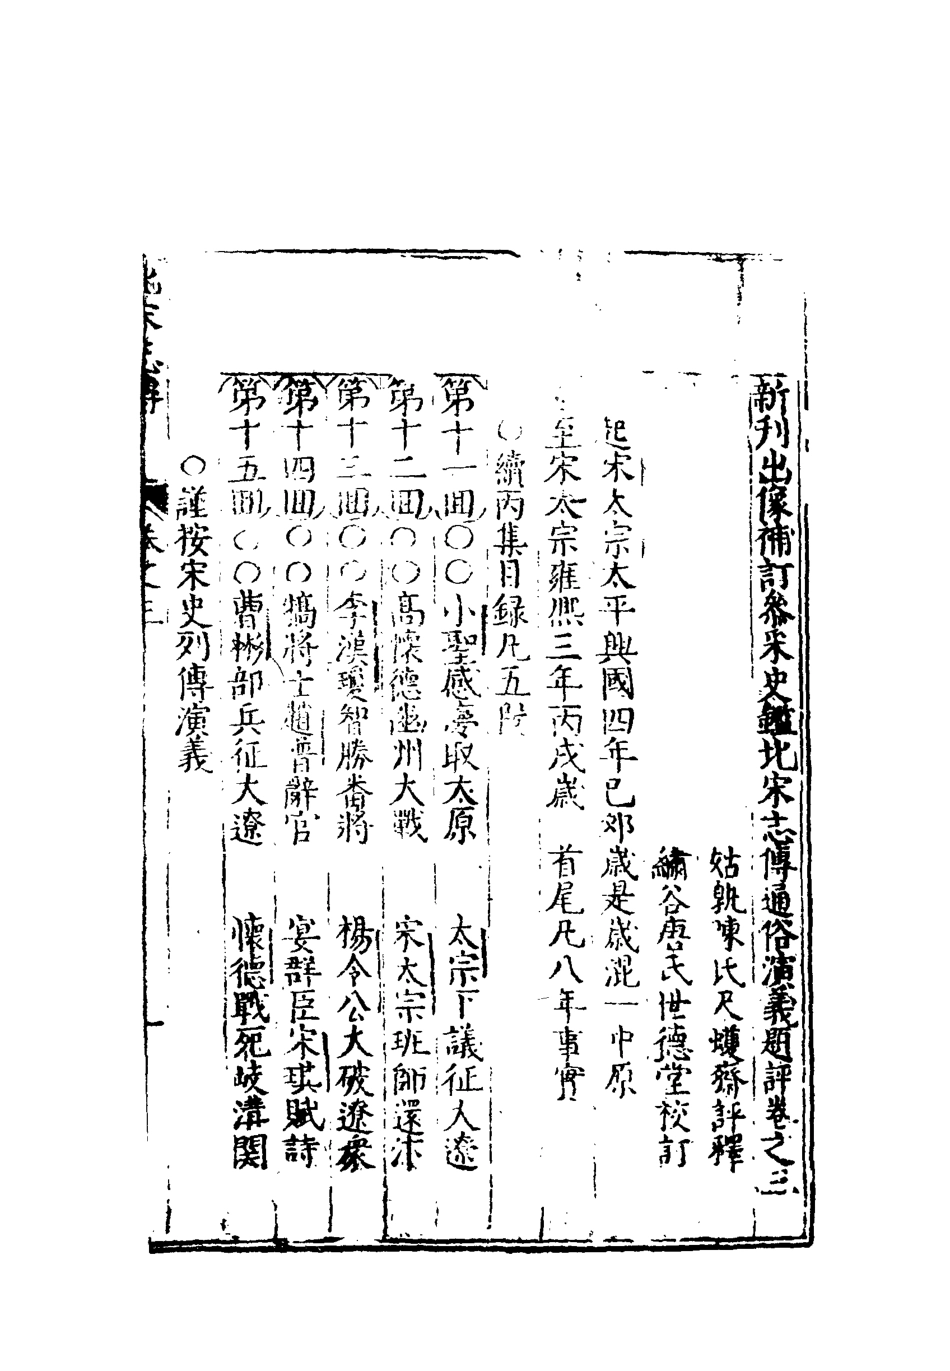 新刊出像補訂參采史鑑北宋志傳通俗演義題評卷之三
姑孰陳氏尺蠖齋評釋
繡谷唐氏世德堂校訂
起宋太宗太平興國四年己卯歲是歲混一中原
至宋太宗雍熙三年丙戌歲 首尾凡八年事實
○續丙集目錄凡五段
第十一回○○小聖感夢取太原 太宗下議征大遼
第十二回○○高懷德幽州大戰 宋太宗班師還汴
第十三回○○李漢瓊智勝番將 楊令公大破遼衆
第十四回○○犒將士趙普辭官 宴群臣宋琪賦詩
第十五回○○曹彬部兵征大遼 懷德戰死岐溝関
○謹按宋史列傳演義
北宋志傳 卷之三 一